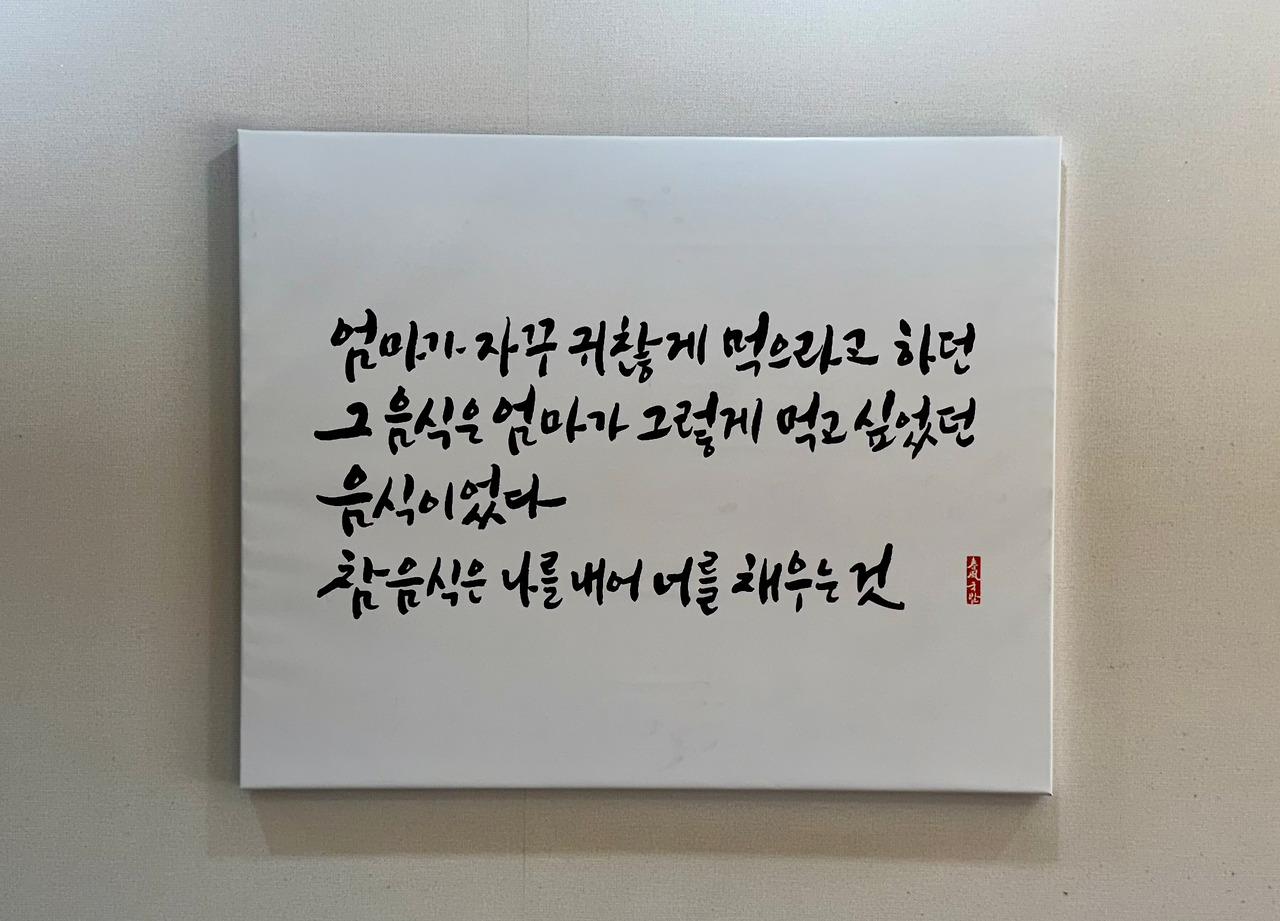 엄마가 자꾸 귀찮게 먹으라고 하던
그 음식은 엄마가 그렇게 먹고 싶었던
음식이었다
참음식은 나를 내어 너를 채우는 것